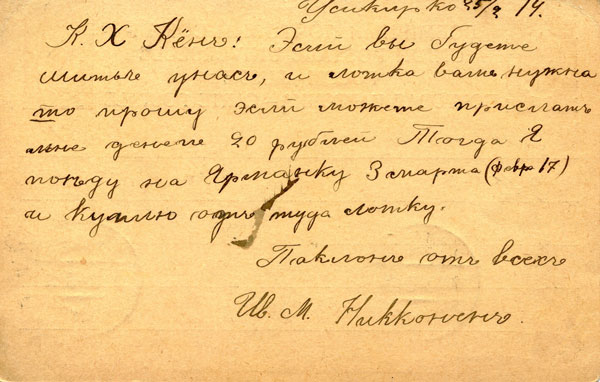 Усикирко 25/2 14.
К. Х Кёнъ! Эсли вы будете
шить унасъ, и лотка вамъ нужна
то прошу эсли можете прислать
мне денегъ 20 рублей Тогда я
поѣду на Ярманку 3 марта (февр 17)
и куплю одъ туда лотку.
Паклонъ отъ всехъ
Ив. М. Никконенъ.